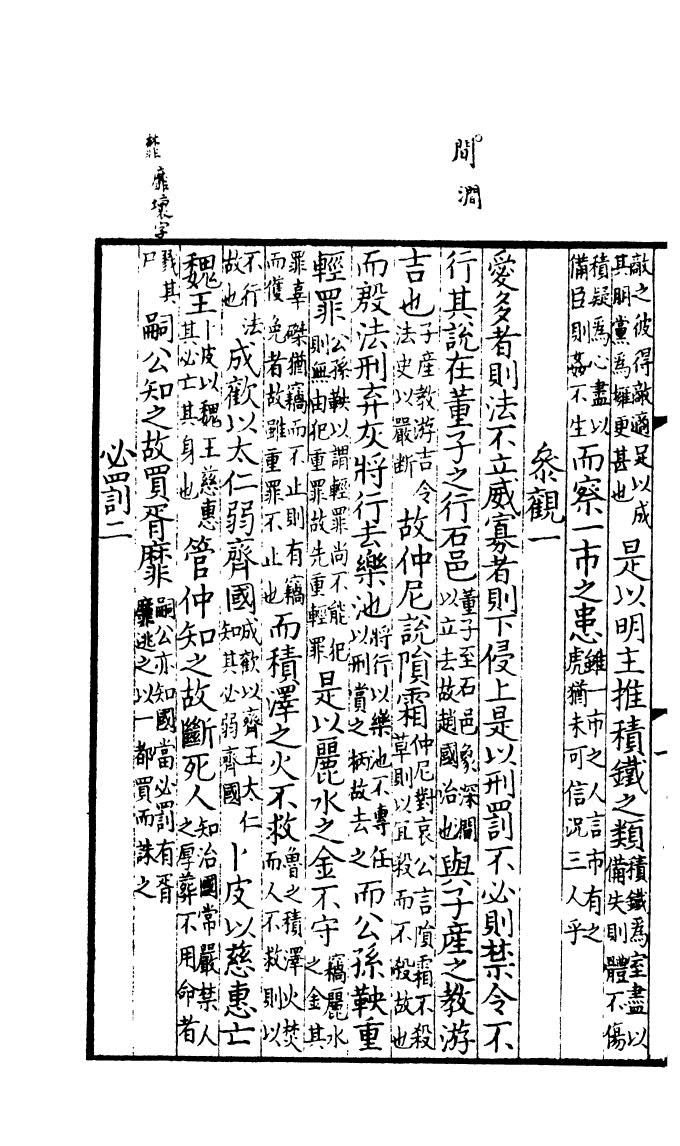 間 澗
靡壞字
敵之彼得敵適足以成
其朋黨爲擁更甚也
是以明主推積鐵之類
積鐵爲室盡以
備失則體不傷
積疑爲心盡以
備臣則姦不生
而察一市之患
雖一市之人言市有之
虎猶未可信況三人乎
叅觀一
愛多者則法不立威寡者則下侵上是以刑罰不必則禁令不
行其說在董子之行石邑
董子至石邑象深澗
以立去故趙國治也
與子產之教游
吉也
子產教游吉令
法史以嚴斷
故仲尼說隕霜
仲尼對哀公言隕霜不殺
草則以宜殺而不殺故也
而殷法刑弃灰將行去樂池
將行以樂池不專任
以刑賞之柄故去之
而公孫鞅重
輕罪
公孫鞅以謂輕罪尚不能犯
則無由犯重罪故先重輕罪
是以麗水之金不守
竊麗水
之金其
罪辜磔猶竊而不止則有竊
而僥免者故雖重罪不止也
而積澤之火不救
魯之積澤火焚
而人不救則以
不行法
故也
成歡以太仁弱齊國
成歡以齊王太仁
知其必弱齊國
卜皮以慈惠亡
魏王
卜皮以魏王慈惠
其必亡其身也
管仲知之故斷死人
知治國常嚴禁人
之厚葬不用命者
戮其
尸
嗣公知之故買胥靡
嗣公亦知國當必罰有胥
靡逃之以一都買而誅之
必罰二